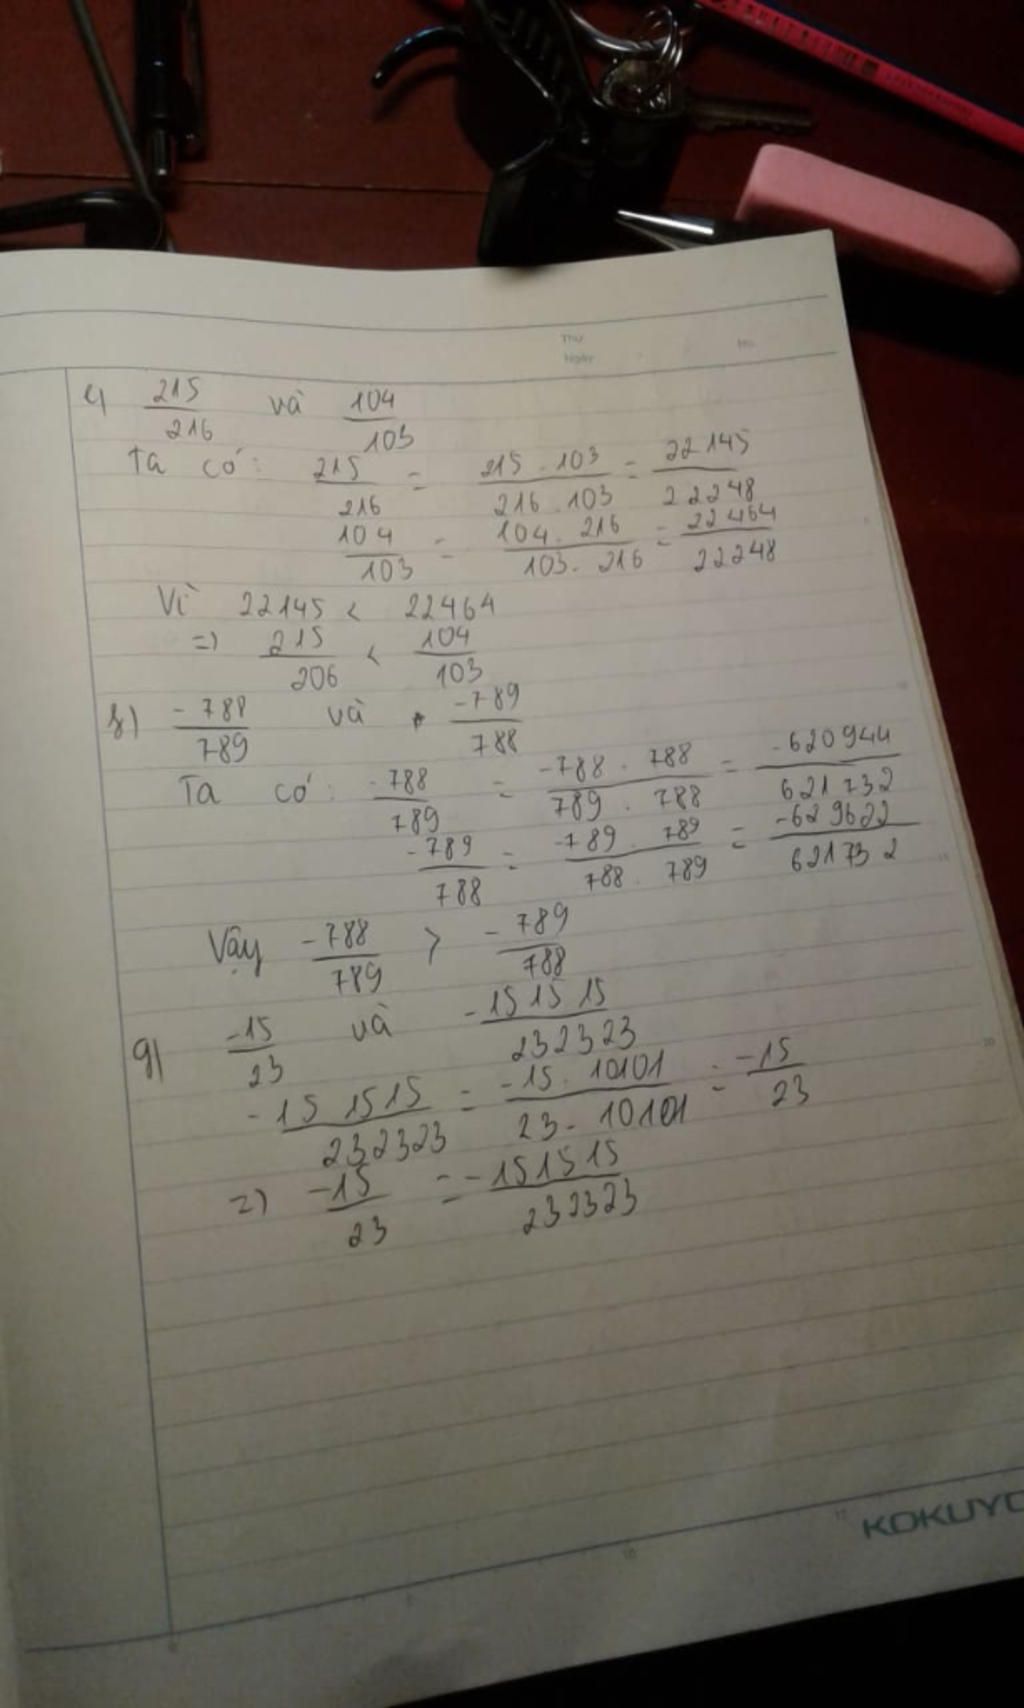 Thứ
Ngày
No.
e) 215/216 và 104/103
Ta có: 215/216 = 215 . 103/216 . 103 = 22145/22248
104/103 = 104 . 216/103 . 216 = 22464/22248
Vì 22145 < 22464
=> 215/206 < 104/103
f) -788/789 và -789/788
Ta có: -788/789 = -788 . 788/789 . 788 = -620944/621732
-789/788 = -789 . 789/788 . 789 = -629622/621732
Vậy -788/789 > -789/788
g) -15/23 và -151515/232323
-151515/232323 = -15 . 10101/23 . 10101 = -15/23
=> -15/23 = -151515/232323
KOKUYO